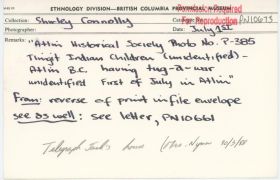 ETHNOLOGY DIVISION—BRITISH COLUMBIA PROVINCIAL MUSEUM
Collector: Shirley Connolly
PN10673
Photographer:
Date: July 1st
Permission Required
For Reproduction
"Atlin Historical Society Photo No. P-385
Tlingit Indian Children (unidentified) -
Atlin B.C. having tug-a-war
unidentified First of July in Atlin"
From: reverse of print in file envelope
see as well: see letter, PN10661
Telegraph Jack's house